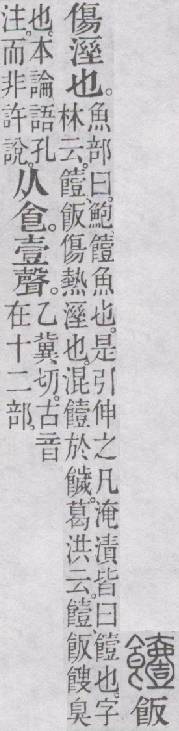 饐飯
傷溼也。
魚部曰。鮑、饐魚也。是引伸之凡淹漬皆曰饐也。字
林云。饐、飯傷熱溼也。混饐於饖。葛洪云。饐、飯餿臭
也。本論語孔
注。而非許說。
从食。壹聲。
乙冀切。古音
在十二部。